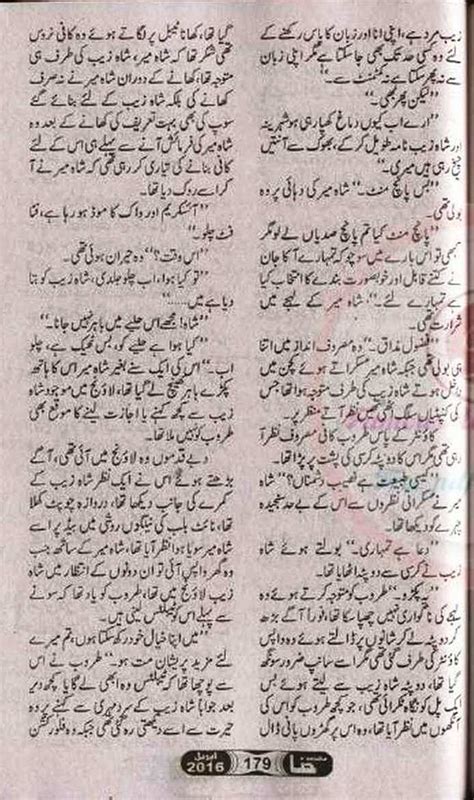 زیب مرد ہے، اپنی انا اور زبان کا پاس رکھنے کے
لئے وہ کسی حد تک بھی جا سکتا ہے مگر اپنی زبان
سے نہ پھر سکتا ہے نہ کمٹمنٹ سے۔“
”لیکن پھر بھی۔“
”ارے اب کیوں دماغ کھپا رہی ہو شہرینہ
اور شاہ زیب نامہ طویل کر کے، بھوک سے آنتیں
چیخ رہی ہیں میری۔“
”بس پانچ منٹ۔“ شاہ میر کی دہائی پر وہ
بولی تھی۔
”پانچ منٹ کیا تم پانچ صدیاں لے لو مگر
کبھی تو اس بارے میں سوچو کہ تمہارے آغا جان
نے کتنے قابل اور خوبصورت بندے کا انتخاب کیا
ہے تمہارے لئے۔“ شاہ میر کے لہجے میں
شرارت تھی۔
”فضول مذاق۔“ وہ مصروف انداز میں اتنا
ہی بولی تھی جبکہ شاہ میر مسکراتے ہوئے کچن میں
داخل ہوتے شاہ زیب کی طرف متوجہ ہوا تھا جس
کی کنپٹیاں سلگ اٹھی تھیں نظر آتے
کاؤنٹر کے پاس طروب کافی مصروف نظر آ
رہی تھی مگر اس کا دوپٹہ کرسی کی پشت پر پڑا تھا۔
”کیسی طبیعت ہے نصیب دشمناں؟“ شاہ
میر نے مسکراتی نظروں سے اس کے بے حد سنجیدہ
چہرے کو دیکھا تھا۔
”دعا ہے تمہاری۔“ بولتے ہوئے شاہ
زیب نے کرسی سے دوپٹہ اٹھا لیا تھا۔
”پکڑو۔“ طروب کو متوجہ کرتے ہوئے وہ
لہجے کی ناگواری نہیں چھپا سکا تھا، فوراً آگے بڑھ
کر دوپٹہ لے کر شانوں پر ڈالتے ہوئے وہ واپس
کاؤنٹر کی طرف گئی تھی مگر اسے سانپ ضرور سونگھ
گیا تھا، دوپٹہ شاہ زیب سے لیتے ہوئے بس
ایک پل کو نگاہ ٹکرائی تھی، جو کچھ طروب کو اس کی
آنکھوں میں نظر آیا تھا، وہ اس پر گھڑوں پانی ڈال
گیا تھا، کھانا ٹیبل پر لگاتے ہوئے وہ کافی نروس
تھی شکر تھا کہ شاہ میر، شاہ زیب کی طرف ہی
متوجہ تھا، کھانے کے دوران شاہ میر نے نہ صرف
کھانے کی بلکہ شاہ زیب کے لئے بنائے گئے
سوپ کی بھی بہت تعریف کی تھی، کھانے کے بعد وہ
شاہ میر کی فرمائش آنے سے پہلے ہی اس کے لئے
کافی بنانے کی تیاری کر رہی تھی کہ شاہ میر نے آ
کر اسے روک دیا تھا۔
”آئسکریم اور واک کا موڈ ہو رہا ہے، فٹا
فٹ چلو۔“
”اس وقت؟“ وہ حیران ہوئی تھی۔
”تو کیا ہوا، اب چلو جلدی، شاہ زیب کو بتا
دیا ہے میں.....“
”شاہ! مجھے اس حلیے میں باہر نہیں جانا۔“
”کیا ہوا ہے حلیے کو، بس ٹھیک ہے، چلو
اب۔“ اس کی ایک سنے بغیر شاہ میر اس کا ہاتھ
پکڑے باہر کھینچ لے گیا تھا، لاؤنج میں موجود شاہ
زیب سے کچھ کہنے یا اجازت لینے کا موقع بھی
طروب کو نہیں ملا تھا۔
دبے قدموں وہ لاؤنج میں آئی تھی، آگے
بڑھتے ہوئے اس نے ایک نظر شاہ زیب کے
کمرے کی جانب دیکھا تھا، دروازہ چوپٹ کھلا
تھا، نائٹ بلب کی نیلگوں روشنی میں بیڈ پر اسے
شاہ میر سویا ہوا نظر آیا تھا، شاہ میر کے ساتھ جب
وہ گھر واپس آئی تو ان دونوں کے انتظار میں شاہ
زیب جاگ رہا تھا، طروب کو یاد تھا کہ سونے
سے پہلے اس کو ٹیبلٹس لینی ہیں۔
”میں اپنا خیال خود رکھ سکتا ہوں، تم میرے
لئے مزید پریشان مت ہو۔“ طروب نے اس
سے پوچھا تھا کہ ٹیبلٹس وہ ابھی لے گا یا کچھ دیر
بعد جواباً شاہ زیب کے سرد مہری سے کہنے پر وہ
حیرت سے اسے دیکھتی رہ گئی تھی جبکہ وہ فلور کشن
حنا 179 اپریل 2016